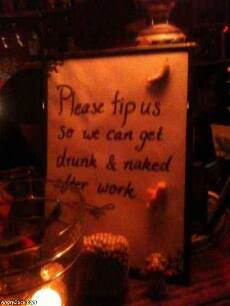 Please tip us
so we can get
drunk & naked
after work